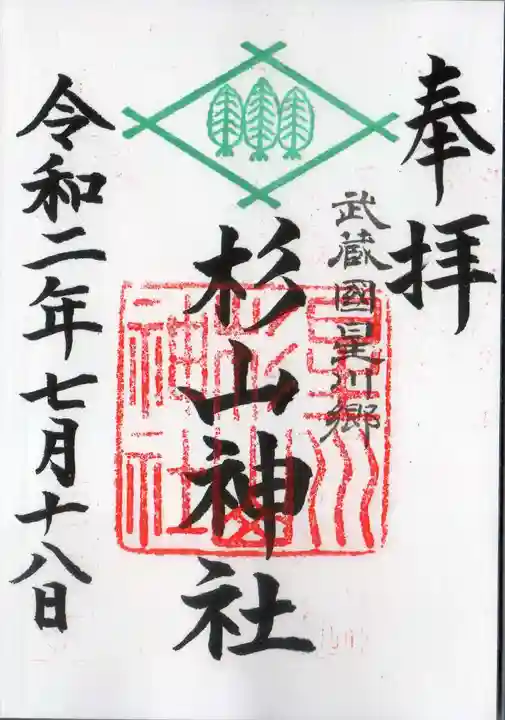 奉拝
武蔵國星川郷
杉山神社
星川杉山神社
令和二年七月十八日